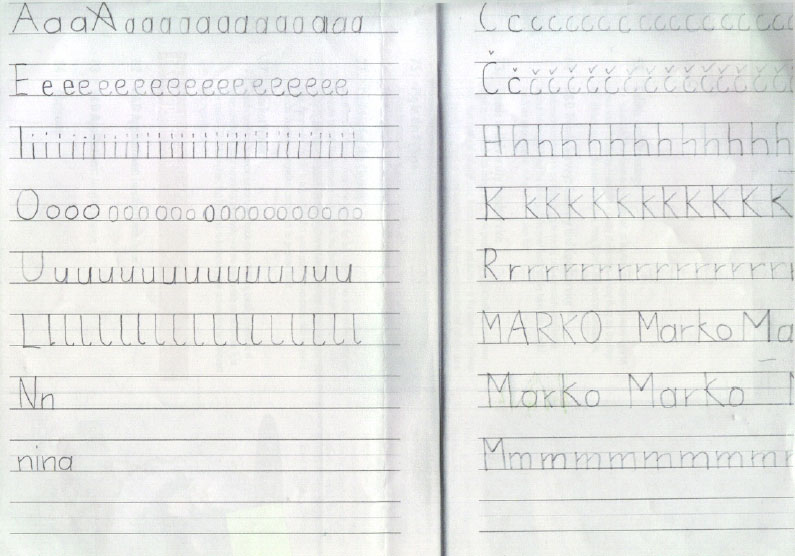 AaaAaaaaaaaaaaaaa
E e eeeeeeeeeeeeeeeee
Iiiiiiiiiiiiiiiiiiiiiiiiiiiii
Oooo oooooo ooooooooooo
Uuuuuuuuuuuuuuu
Llllllllllllllll
Nn
nina
Cccccccccccccc
Čččččččččččččč
Hhhhhhhhhhhhh
K kkkkkkkkkkkk
Rrrrrrrrrrrrrrr
MARKO Marko Ma
Marko Marko M
Mmmmmmmmmm